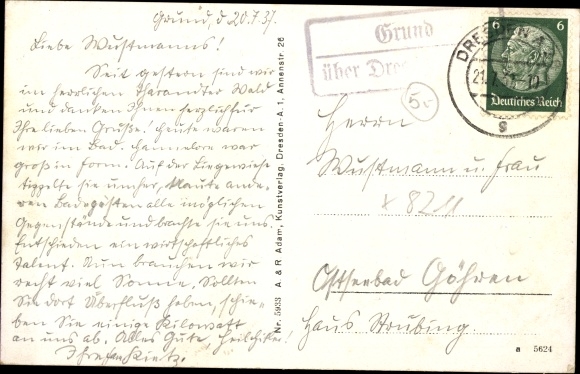 Grund, d. 20.7.37.
Liebe Wustmanns!
Seit gestern sind wir
im herrlichen Tharandter Wald
und danken Ihnen herzlich für
Ihre lieben Grüße. Heute waren
wir im Bad. Hannelore war
groß in Form. Auf der Liegewiese
unser, Maute ande-
ren Badegästen alle möglichen
Gegenstände und brachte sie uns.
Entschieden ein wirtschaftliches
Talent. Nun brauchen wir
recht viel Sonne. Sollten
Sie dort Überfluß haben, schie-
ben Sie einige Kilowatt
an uns ab. Alles Gute,
Ihre
Nr. 5933 A. & R. Adam, Kunstverlag, Dresden-A. 1, Annenstr. 26
Grund
über Dres
DRESDEN
21.7.37.
g
6 6
Deutsches Reich
5.-
Herrn
Wustmann u. Frau
x 8211
Ostseebad Göhren
Haus Strubing
a 5624